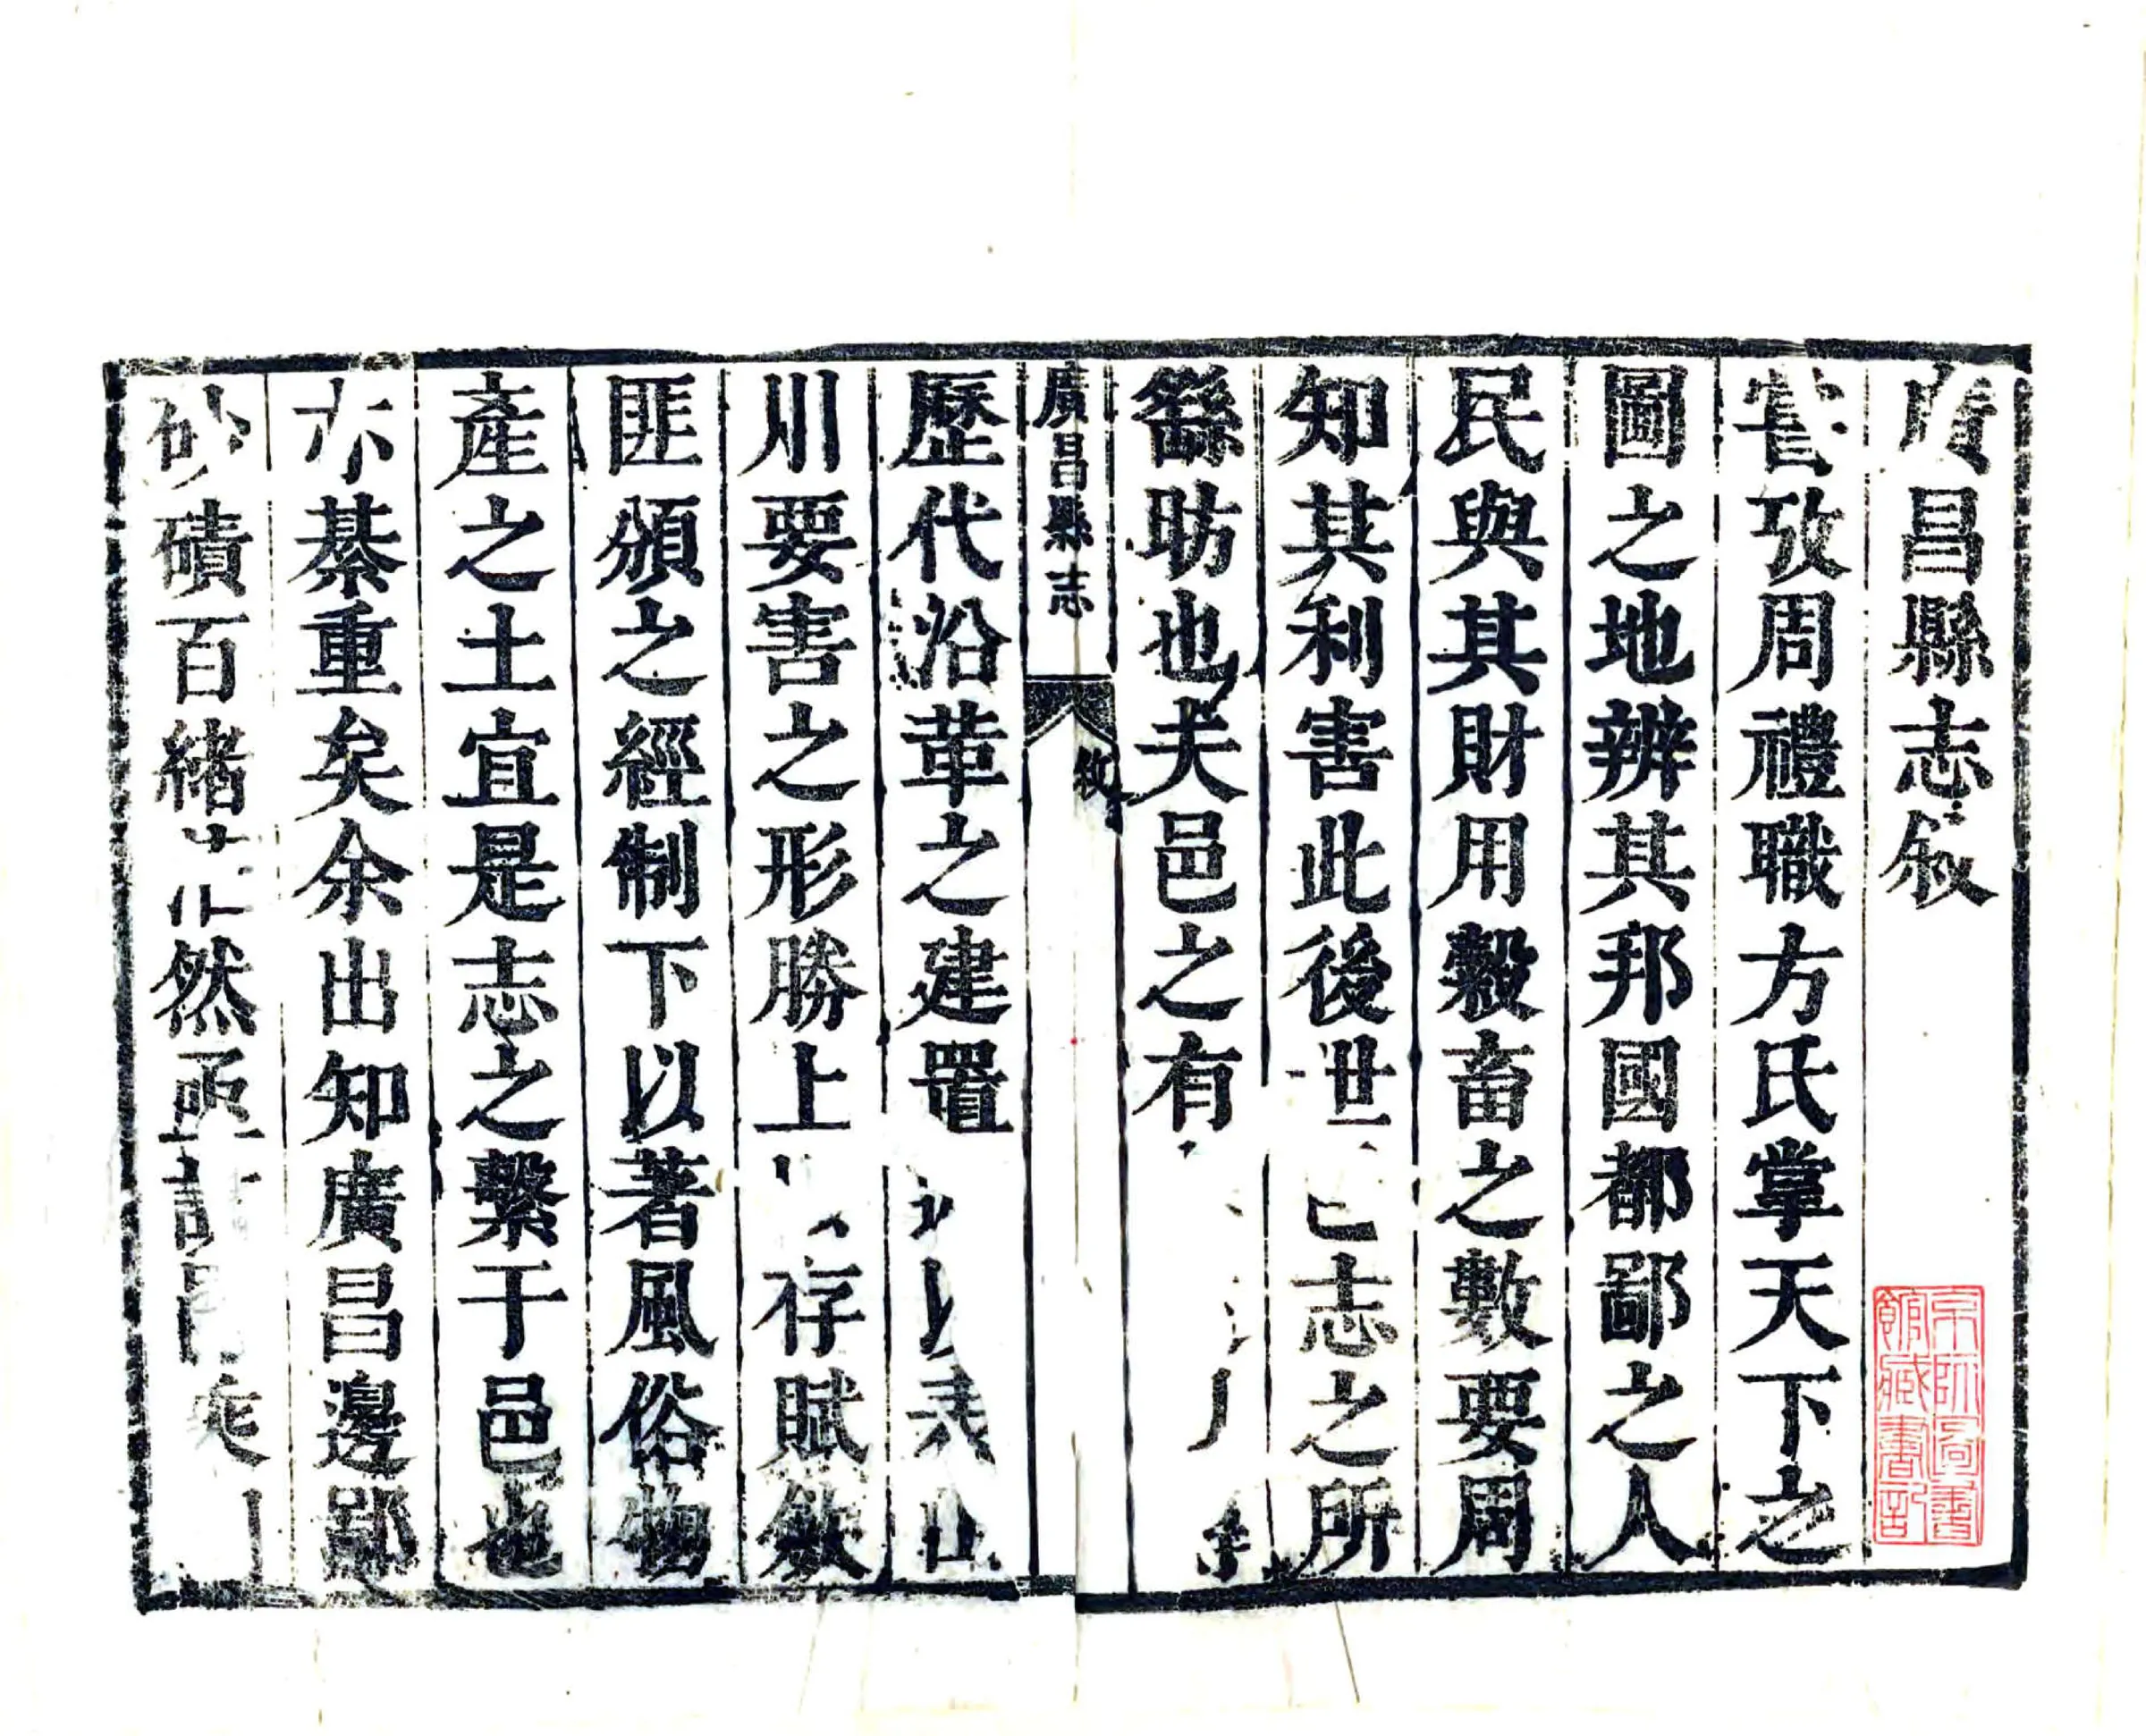 廣昌縣志敘
嘗攷周禮職方氏掌天下之
圖之地辨其邦國都鄙之人
民與其財用穀畜之數要周
知其利害此後世邑志之所
繇昉也夫邑之有
廣昌縣志
敘
歷代沿革之建置
川要害之形勝上 存賦斂
匪頒之經制下以著風俗物
產之土宜是志之繫于邑也
亦綦重矣余出知廣昌邊鄙
砂磧百緒茫然亟
京師圖書
館藏書記